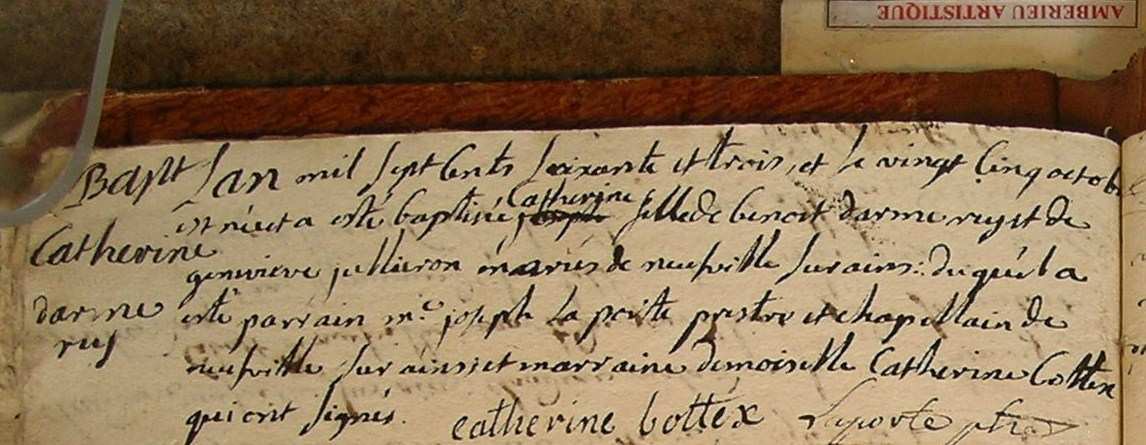 AMBERIEU ARTISTIQUE
Bapt
Catherine
darme
ruy
Lan mil sept cents soixante et trois, et le vingt cinq octob
est née et a esté baptisée Catherine joseph fille de benoit darmeruy et de
genevieve jullieron mariés de neufville sur ains: duquél a
esté parrain mre joseph La porte prestre et chapellain de
neufville sur ains: et marraine demoiselle Catherine bottex
qui ont signés.
catherine bottex Laporte ptre